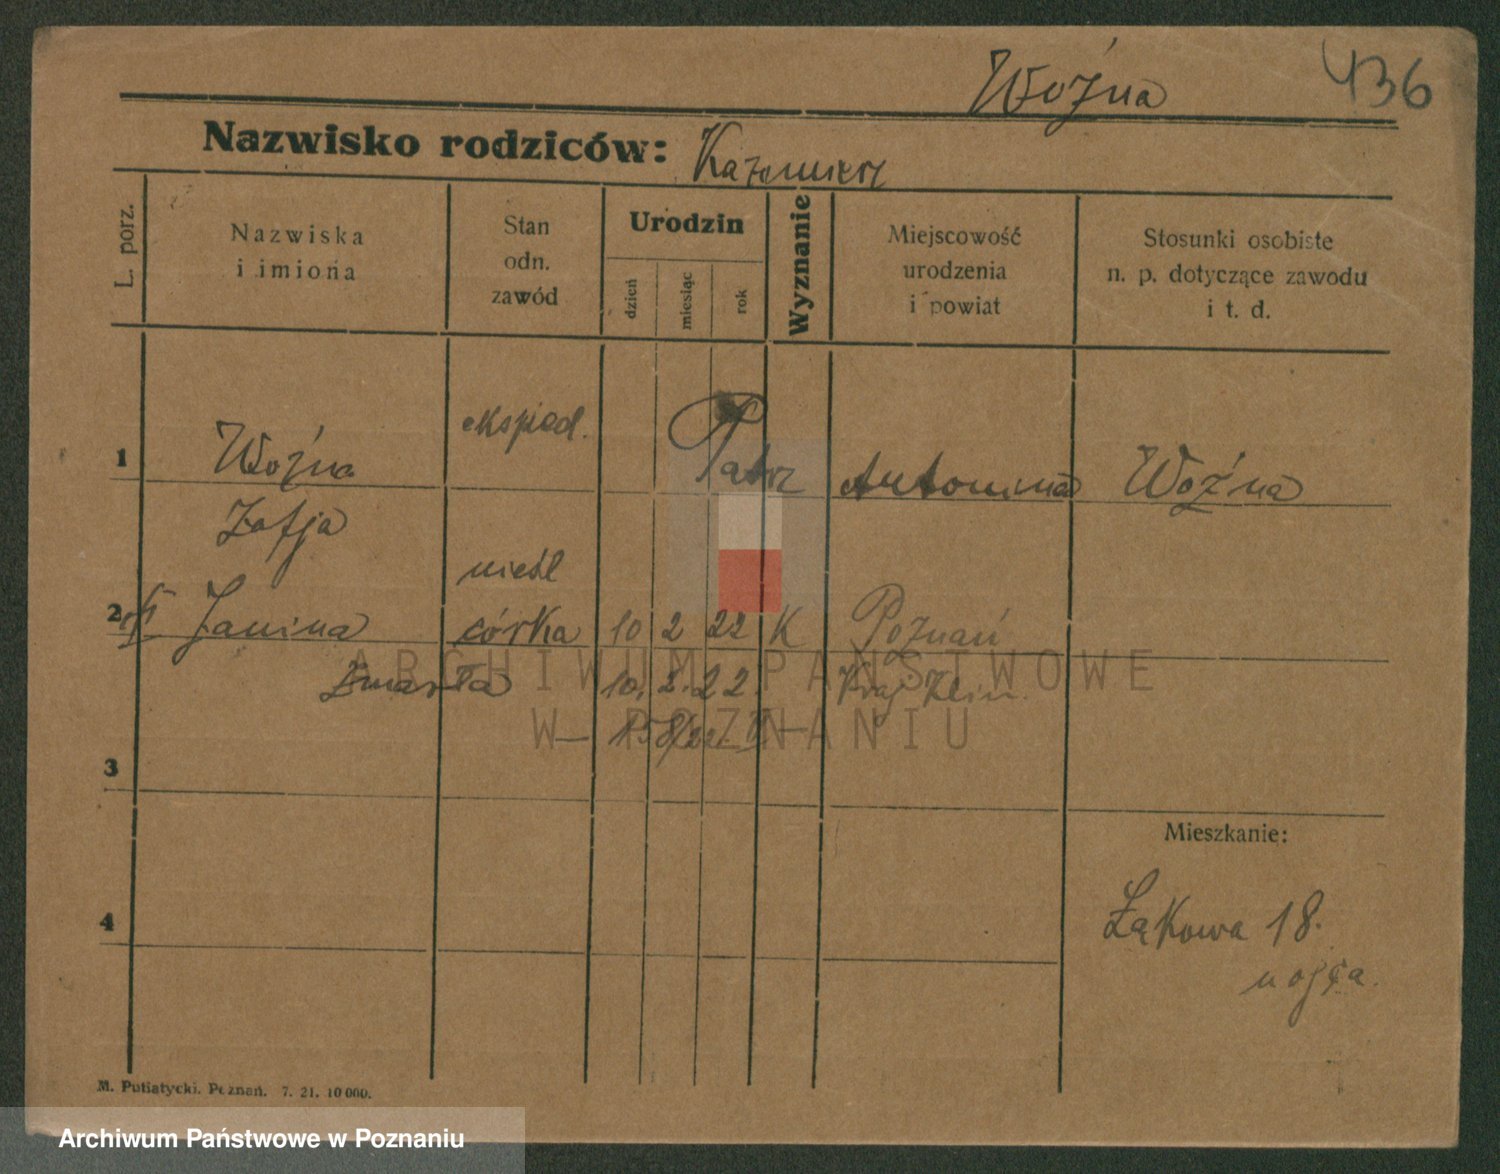 Woźna
436
Nazwisko rodziców: Kazimierz
L. porz.
Nazwiska
i imiona
Stan
odn.
zawód
Urodzin
dzień
miesiąc
rok
Wyznanie
Miejscowość
urodzenia
i powiat
Stosunki osobiste
n. p. dotyczące zawodu
i t. d.
eksped.
1 Woźna Patrz Antonina Woźna
Zofja
nieśl
2 Janina córka 10 2 22 K Poznań
Zmarła 10. 2. 22.
158/22
3
Mieszkanie:
4
Łąkowa 18.
u ojca.
M. Putiatycki. Poznań. 7. 21. 10 000.
ARCHIWUM PAŃSTWOWE
W POZNANIU
Archiwum Państwowe w Poznaniu